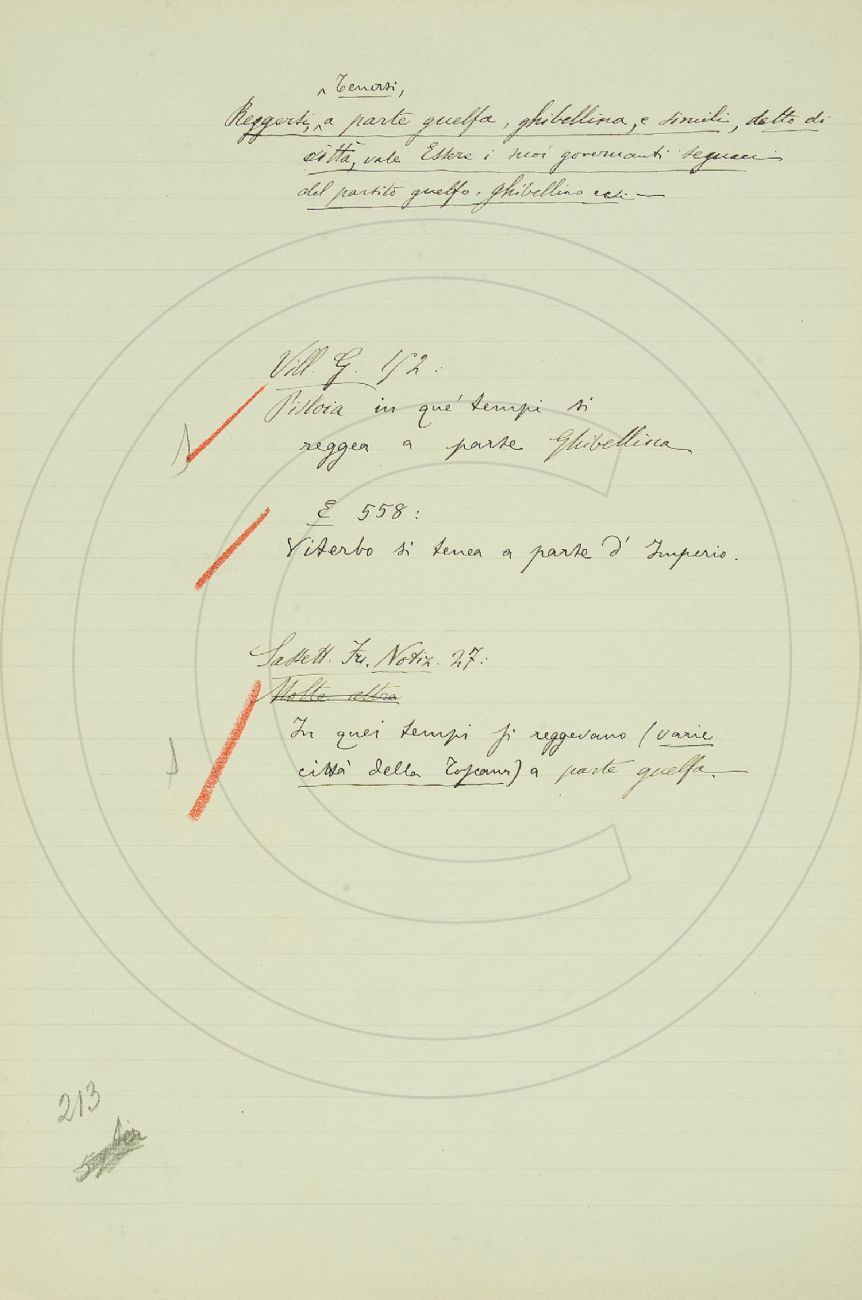 Tenersi,
Reggersi, a parte guelfa, ghibellina, e simili, detto di
città, vale Essere i suoi governanti seguaci
del partito guelfo, ghibellino ec. —
Vill. G. 152:
Pistoia in que' tempi si
reggea a parte Ghibellina
E 558:
Viterbo si tenea a parte d' Imperio.
Sassett. Fr. Notiz. 27:
Molte altre
In quei tempi si reggevano (varie
città della Toscana) a parte guelfa. —
213